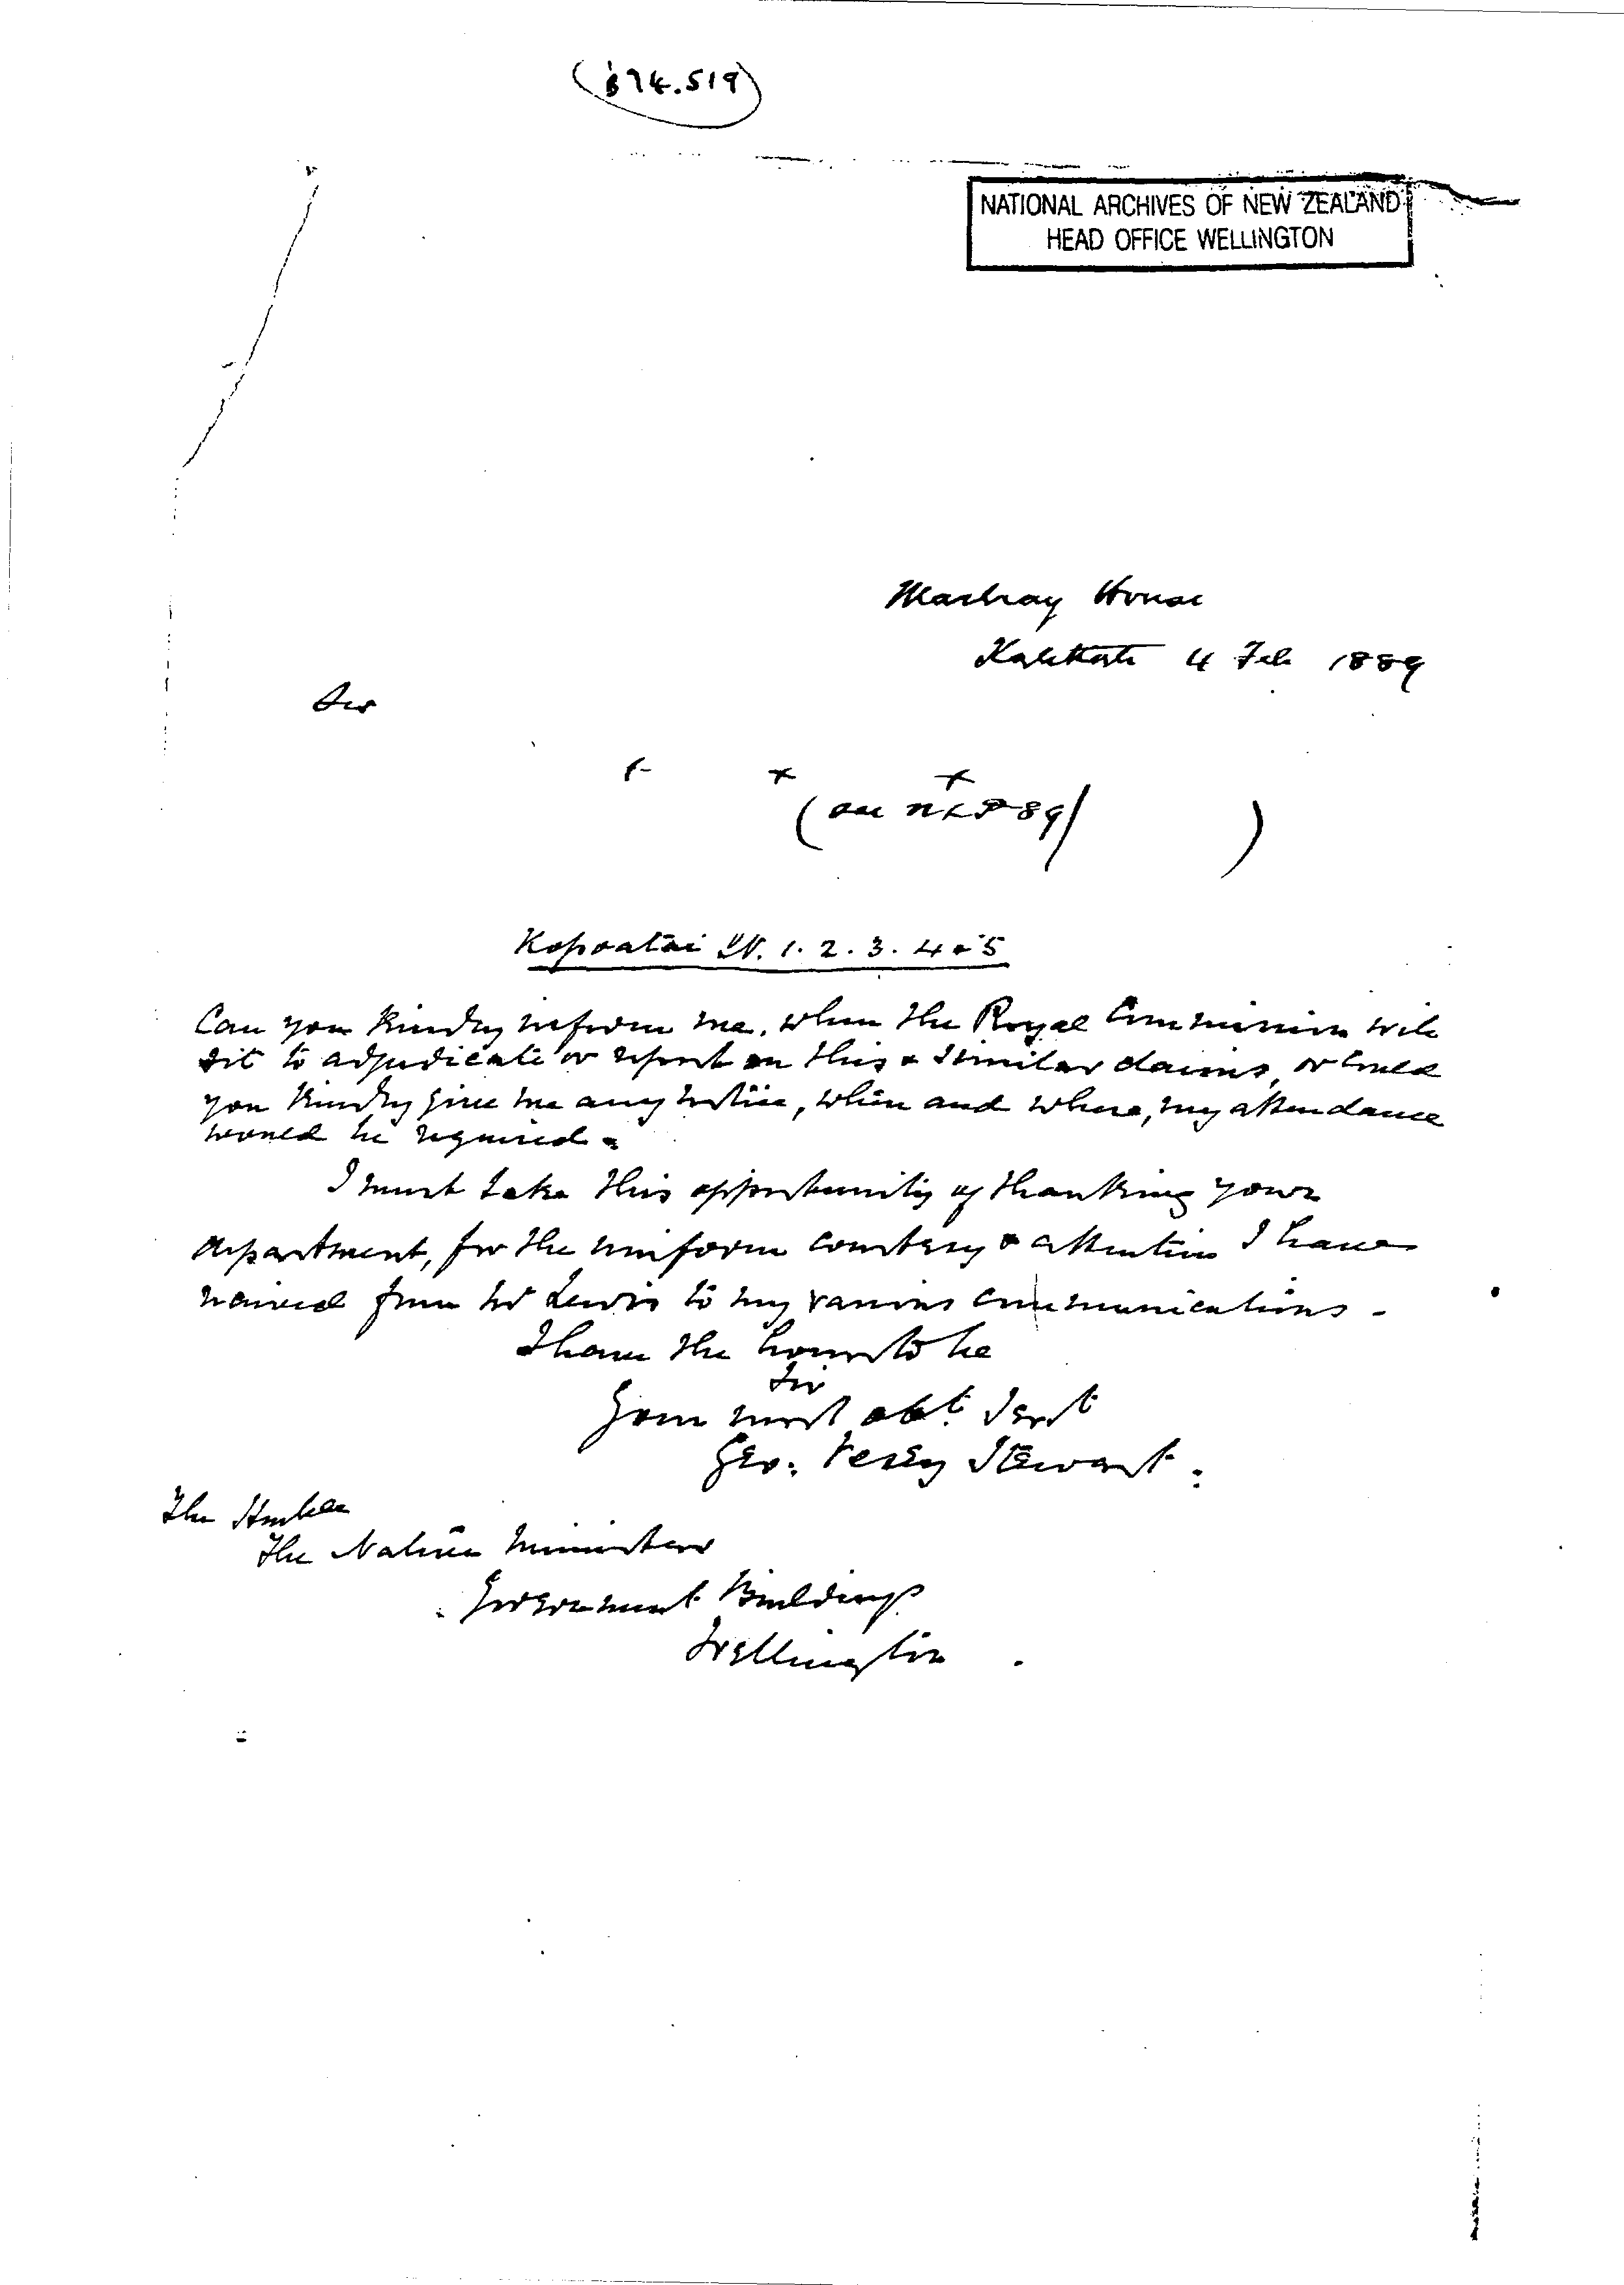 (874.519)
NATIONAL ARCHIVES OF NEW ZEALAND
HEAD OFFICE WELLINGTON
House
Katikati 4 Feb 1889
Sir
+ + +
(on NLP 89/ )
Kopoatai N. 1. 2. 3. 4 & 5
Can you kindly inform me, when the Royal Commission will
sit to adjudicate or report on this & similar claims, or could
you kindly give me any notice, when and where, my attendance
would be required.
I must take this opportunity of thanking your
department, for the uniform courtesy & attention I have
received from Mr Lewis to my various communications -
I have the honor to be
Sir
Your most obt Servt
Geo: Vesey Stewart.
The Honble
The Native Minister
Government Buildings
Wellington